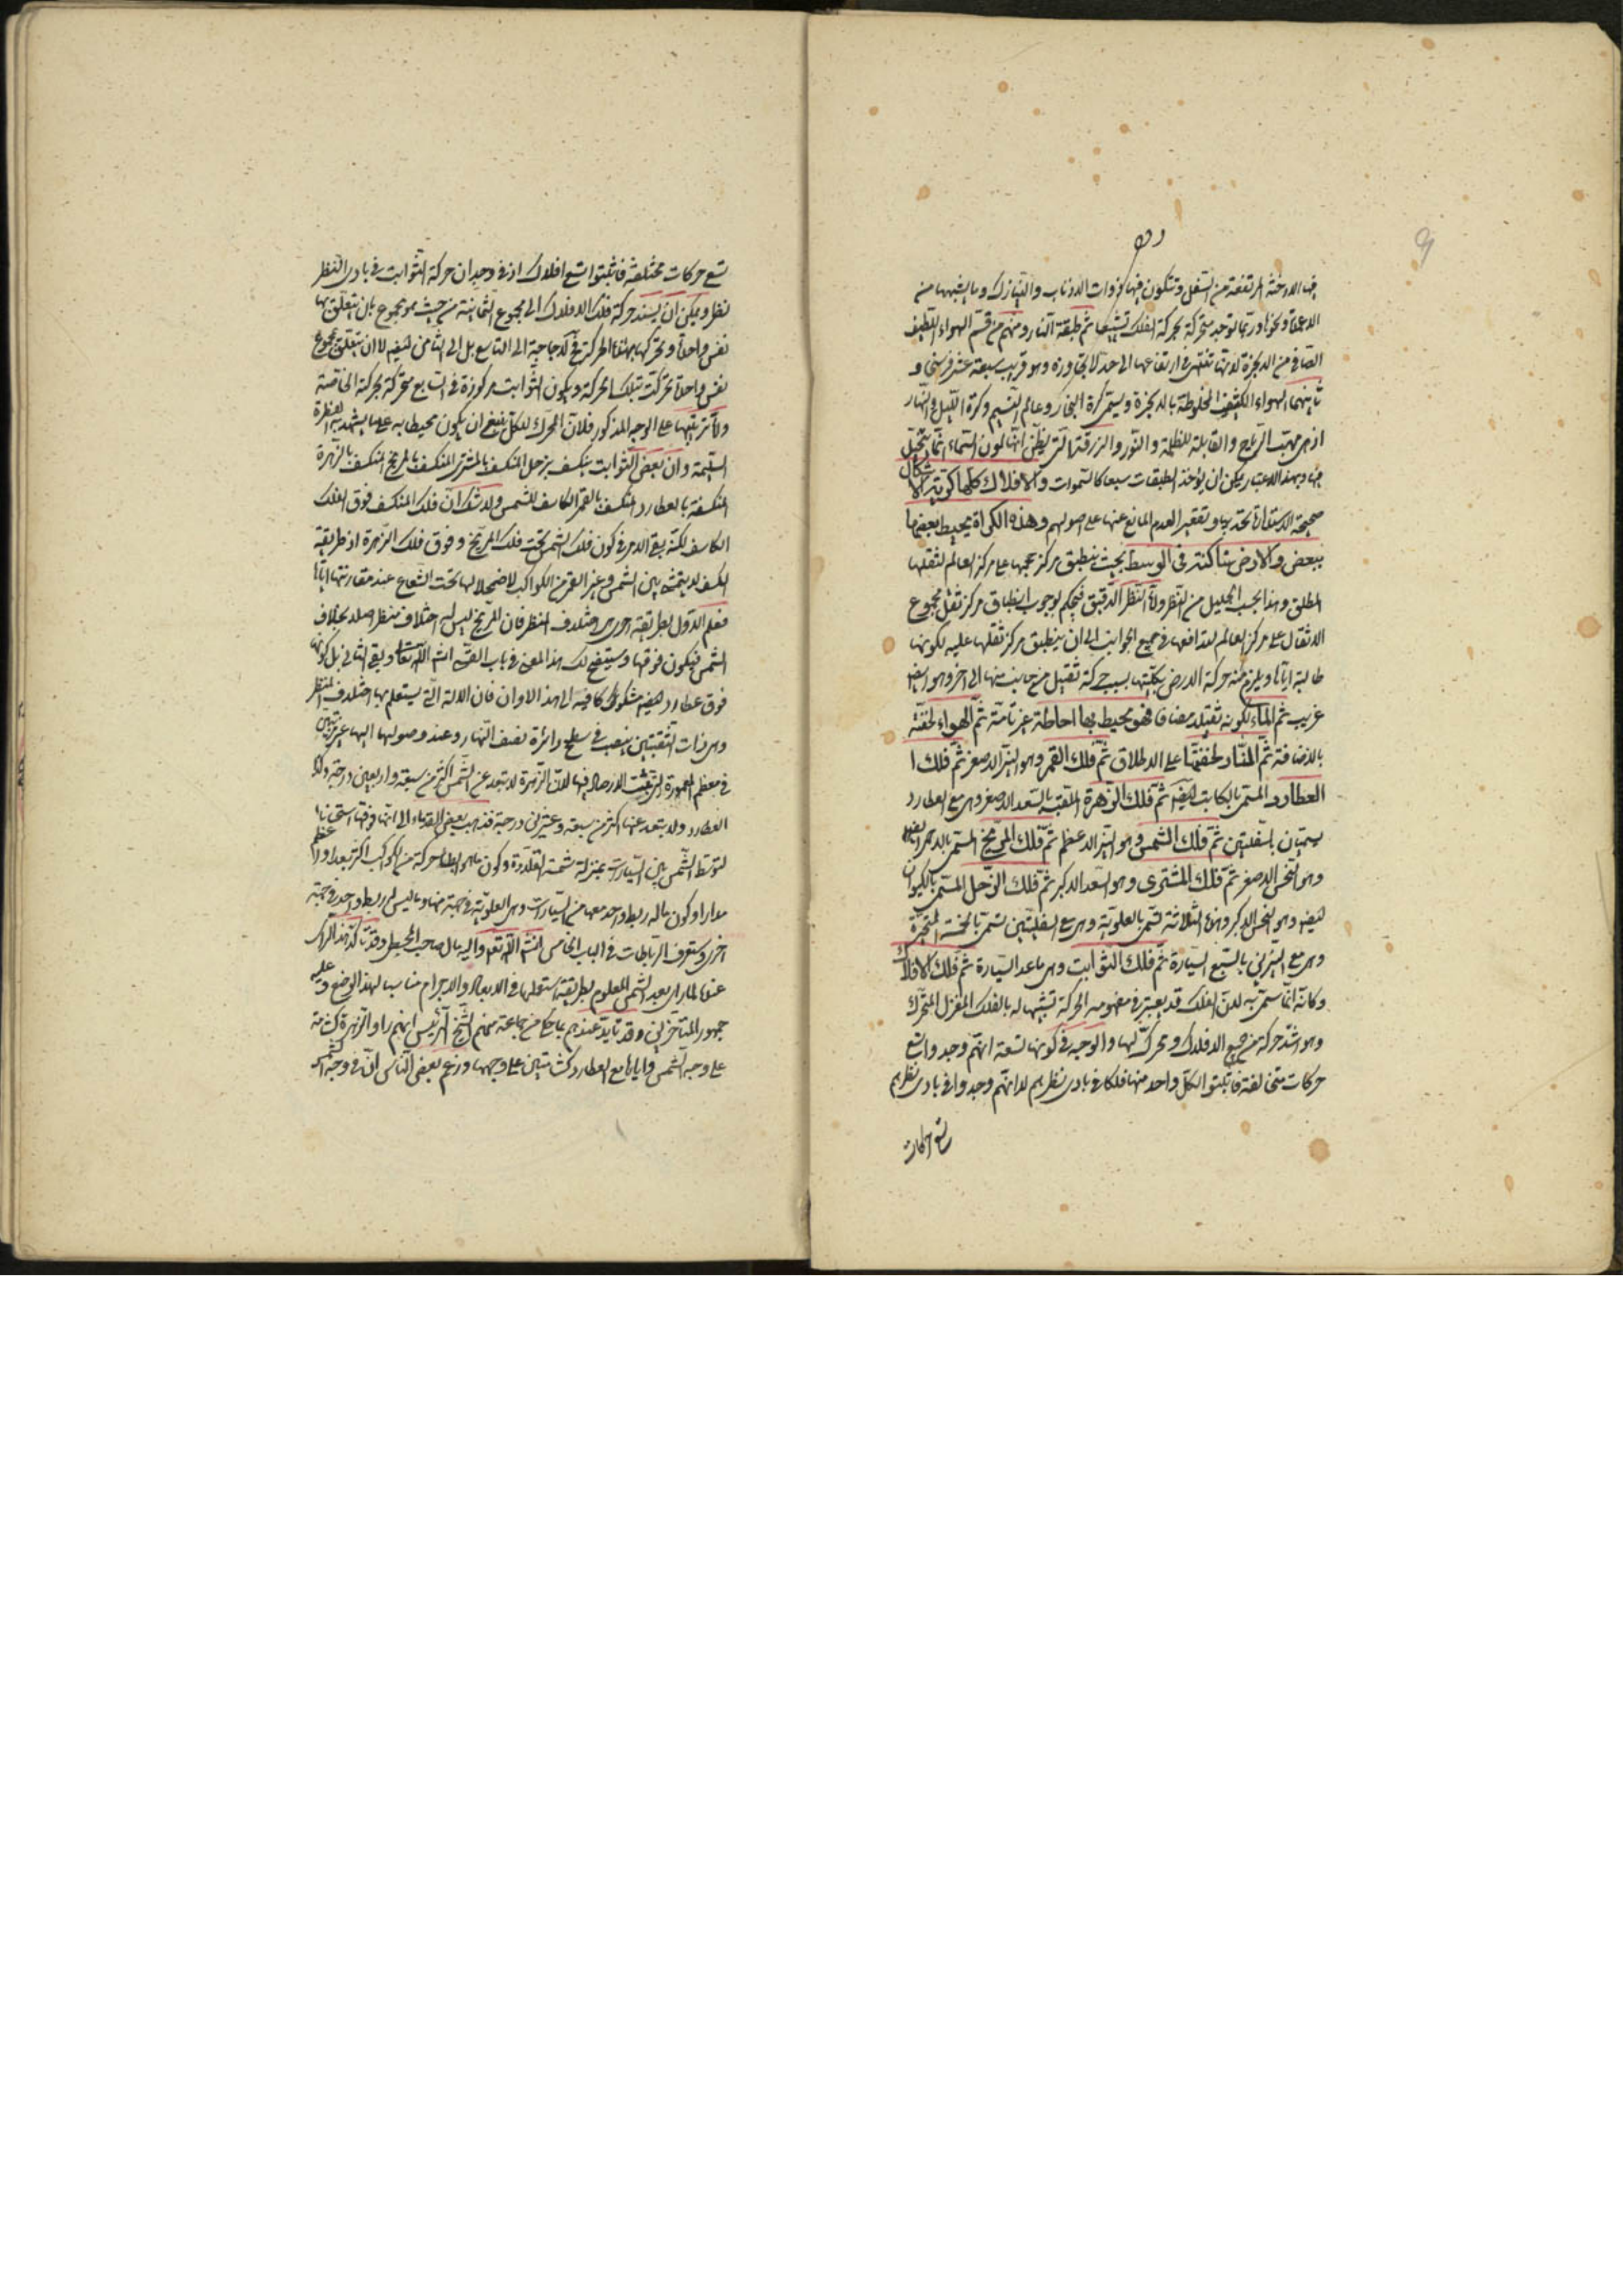 فيها الادخنة المرتفعة من السفل وتتكون فيها ذوات الاذناب والنيازك وما يشبهها من
الاعمدة ونحوها وربما توجد متحركة بحركة الفلك تشييعا ثم طبقة النار ومنهم من قسم الهواء اللطيف
الصافي من الابخرة لانها تنتهي في ارتفاعها الى حد لا يتجاوزه وهو قريب سبعة عشر فرسخا و
ثانيهما الهواء الكثيف المخلوطة بالابخرة ويسمى كرة البخار وعالم النسيم وكرة الليل والنهار
اذ هي مهب الرياح والقابلة للظلمة والنور والزرقة التي يظن انها لون السماء انما تتخيل
فيها وبهذا الاعتبار يمكن ان يؤخذ الطبقات سبعا كالسموات والافلاك كلها كرية الاشكال
صحيحة الاستدارة تحديبا وتقعيرا لعدم المانع عنها على اصولهم وهذه الكراة يحيط بعضها
ببعض والارض ساكنة في الوسط بحيث ينطبق مركز حجمها على مركز العالم لثقلها
المطلق وهذا بحسب الجليل من النظر واما النظر الدقيق فيحكم بوجوب انطباق مركز ثقل مجموع
الاثقال على مركز العالم لتدافعها في جميع الجوانب الى ان ينطبق مركز ثقلها عليه لكونها
طالبة اياه ويلزم منه حركة الارض بكليتها بسبب حركة ثقيل من جانب منها الى اخر وهو ايضا
غريب ثم الماء لكونه ثقيلا مضافا فهو محيط بها احاطة غير تامة ثم الهواء لخفته
بالاضافة ثم النار لخفتها على الاطلاق ثم فلك القمر وهو النير الاصغر ثم فلك ا
العطارد المسمى بالكاتب ايضا ثم فلك الزهرة الملقبة بالسعد الاصغر وهي مع العطارد
يسميان بالسفليين ثم فلك الشمس وهو النير الاعظم ثم فلك المريخ المسمى بالاحمر ايضا
وهو النحس الاصغر ثم فلك المشتري وهو السعد الاكبر ثم فلك الزحل المسمى بالكيوان
ايضا وهو النحس الاكبر وهذه الثلاثة تسمى بالعلوية وهي مع السفليين تسمى بالخمسة المتحيرة
وهي مع النيرين بالسبع السيارة ثم فلك الثوابت وهي ما عدا السيارة ثم فلك الافلاك
وكانه انما سمي به لان الفلك قد يعتبر في مفهومه الحركة تشبيها له بالفلك المغزل المتحرك
وهو اشد حركة من جميع الافلاك ومحرك لها والوجه في كونها تسعة انهم وجدوا تسع
حركات متخالفة فاثبتوا لكل واحد منها فلكا في بادي نظرهم لا انهم وجدوا في بادي نظرهم
تسع حركات
تسع حركات مختلفة فاثبتوا تسع افلاك اذ في وجدان حركة الثوابت في بادي النظر
نظر ويمكن ان يسند حركة فلك الافلاك الى مجموع الثمانية من حيث هو مجموع بان يتعلق بها
نفس واحدة وتحركها بهذه الحركة فلا حاجة الى التاسع بل الى الثامن ايضا لا ان يتعلق بمجموع
نفس واحدة تحركت بتلك الحركة ويكون الثوابت مركوزة في السابع متحركة بحركة الخاصة
واما ترتيبها على الوجه المذكور فلان المحرك للكل ينبغي ان يكون محيطا به على ما يشهد به الفطرة
السليمة وان بعض الثوابت ينكسف بزحل المنكسف بالمشتري المنكسف بالمريخ المنكسف بالزهرة
المنكسفة بالعطارد المنكسف بالقمر الكاسف للشمس ولا شك ان فلك المنكسف فوق الفلك
الكاسف لكنه بقي الامر في كون فلك الشمس تحت فلك المريخ وفوق فلك الزهرة اذ طريقة
الكسف لا يتمشى بين الشمس وغير القمر من الكواكب لاضمحلالها تحت الشعاع عند مقارنتها اياها
فعلم الاول بطريقة اخرى هي اختلاف المنظر فان المريخ ليس له اختلاف منظر اصلا بخلاف
الشمس فيكون فوقها وسيتضح لك هذا المعنى في باب القمر انشاء الله تعالى وبقي الثاني بل كونها
فوق عطارد ايضا مشكوكا فيه الى هذا الاوان فان الالة التي يستعلم بها اختلاف المنظر
وهي ذات الثقبتين ينصب في سطح دائرة نصف النهار وعند وصولها اليها غير مرئيين
في معظم المعمورة التي عينت الارصاد فيها لان الزهرة لا يتبعد عن الشمس اكثر من سبعة واربعين درجة وكذا
العطارد ولا يتبعد عنها اكثر من سبعة وعشرين درجة فذهب بعض القدماء الى انها فوقها استحسانا
لتوسط الشمس بين السيارات بمنزلة شمسة القلادة وكون ما هو ابطأ حركة من الكواكب اكثر بعدا واعظم
مدارا وكون ماله ربط واحد معها من السيارات وهي العلوية في جهة منها وما ليس له ربط واحد في جهة
اخرى وستعرف الرباطات في الباب الخامس انشاء الله تعالى واليه مال صاحب المجسطي وقد تأكد هذا الرأي
عنده لما رأى بعد الشمس المعلوم بطريقة ستعلمها في الابعاد والاجرام مناسبا لهذا الوضع وعليه
جمهور المتأخرين وقد تأيد عندهم بما حكى من جماعة منهم الشيخ الرئيس انهم رأوا الزهرة كشامة
على وجه الشمس واياها مع العطارد كشامتين على وجهها وزعم بعض الناس ان في وجه الشمس